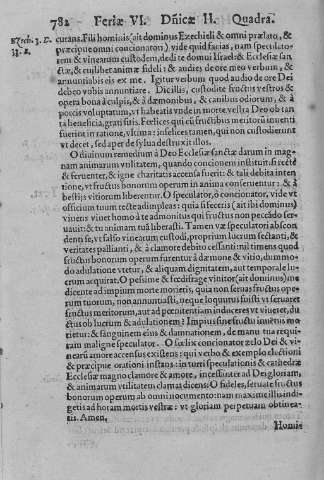 782 Feriæ VI. Dñicæ II. Quadra.
curans. Fili hominis (ait dominus Ezechieli & omni prælato, &
præcipue omni concionatori) vide quid facias, nam speculatorem
& vinearum custodem, dedi te domui Israel: & Ecclesiæ sanctæ,
& cuilibet animæ fideli: & audies de ore meo verbum, &
annuntiabis eis ex me. Igitur verbum quod audio de ore Dei
debeo vobis annuntiare. Dicillis, custodite fructus vestros &
opera bona à culpis, & à dæmonibus, & canibus odiorum, & à
porcis voluptatum, vt habeatis vnde in morte vestra Deo obtanta
beneficia, grati sitis. Felices qui cũ fructibus meritorũ inuenti
fuerint in ratione, vltima: infelices tamen, qui non custodierint
vt decet, sed aper de sylua destruxit illos.
O diuinum remedium à Deo Ecclesiæ sanctæ datum in magnam
animarum vtilitatem, quando concionem instituit: si recte
& feruenter, & igne charitatis accensa fuerit: & tali debita intentione,
vt fructus bonorum operum in anima conseruentur: & à
bestijs vitiorum liberentur. O speculator, ô concionator, vide vt
officium tuum recte adimpleas: quia si feceris (ait ibi dominus)
viuens viuet homo à te admonitus qui fructus non peccãdo seruauit:
& tu animam tuã liberasti. Tamen væ speculatori abscondenti
se, vt falso vinearum custodi, proprium lucrum sectanti, &
veritates pallianti, & à clamore debito cessanti: nil timens quod
fructus bonorum operum furentur à dæmone & vitio, dummodo
adulatione vtetur, & aliquam dignitatem, aut temporale lucrum
acquirat. O pessime & fœdifrage vinitor (ait dominus) me
dicente ad impium morte morieris, quia non seruas fructus operum
tuorum, non annuntiasti, neque loquutus fuisti vt seruaret
fructus meritorum, aut ad pœnitentiam induceres vt viueret, ductus
ob lucrum & adulationem: Impius sine fructu inuentus morietur:
& sanguinem eius & damnationem, de manu tua requiram
maligne speculator. O fœlix concionator zelo Dei & vinearũ
amore accensus existens: qui verbo & exemplo electioni
& præcipue orationi instans: in turri speculationis & cathedræ
Ecclesiæ magno clamore & amore, incessanter ad Dei gloriam,
& animarum vtilitatem clamat dicens: O fideles, seruate fructus
bonorum operum ab omni nocumento: nam maxime illis indigetis
ad horam mortis vestræ: vt gloriam perpetuam obtineatis.
Amen.
Homis